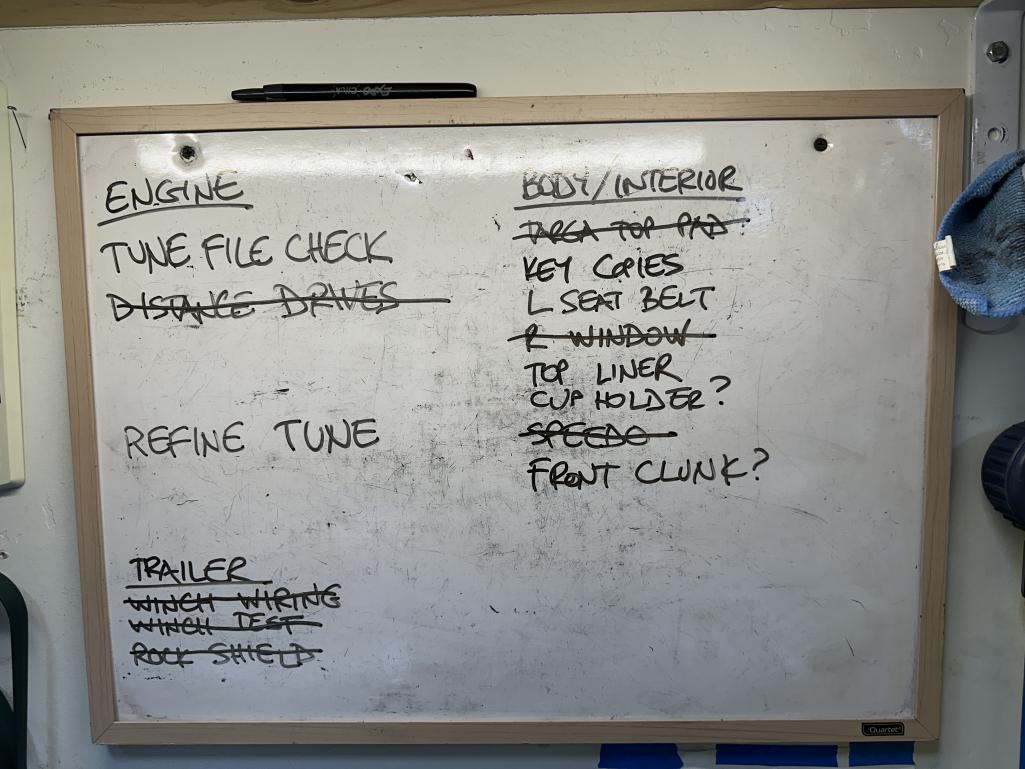 EXPO click
ENGINE
TUNE FILE CHECK
DISTANCE DRIVES
REFINE TUNE
TRAILER
WINCH WIRING
WINCH TEST
ROCK SHIELD
BODY/INTERIOR
TARGA TOP PAD
KEY COPIES
L SEAT BELT
R WINDOW
TOP LINER
CUP HOLDER?
SPEEDO
FRONT CLUNK?
Quartet